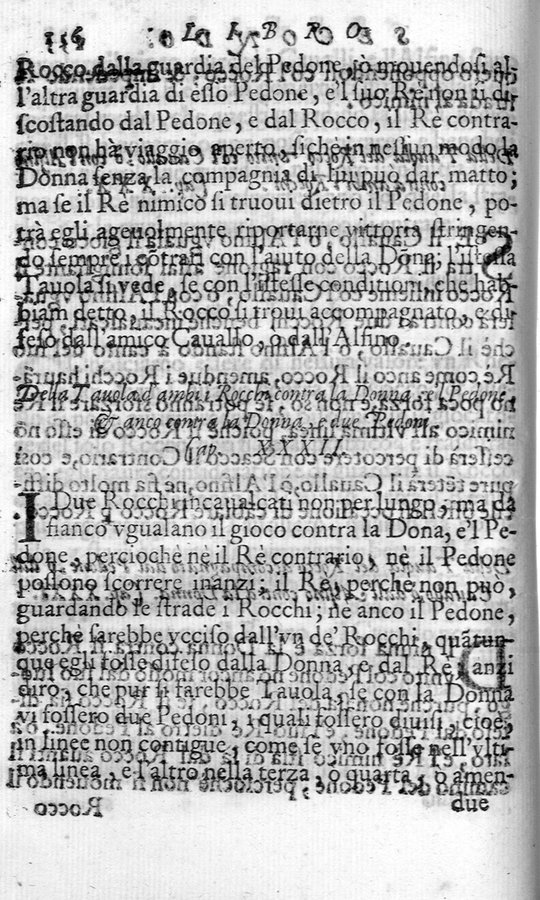 116 LIBRO
Rocco dalla guardia del Pedone, ò mouendosi al-
l'altra guardia di esso Pedone, e'l suo Rè non si di-
scostando dal Pedone, e dal Rocco, il Rè contra-
rio non hà viaggio aperto, sichè in nessun modo la
Donna senza la compagnia di lui può dar matto;
ma se il Rè nimico si truoui dietro il Pedone, po-
trà egli ageuolmente riportarne vittoria stringen-
do sempre i côtrarî con l'aiuto della Dõna; l'istessa
Tauola si vede, se con l'istesse conditioni, che hab-
biam detto, il Rocco si troui accompagnato, e di-
feso dall'amico Cauallo, o dall'Alfino.
Della Tauola d'ambi i Rocchi contra la Donna, e'l Pedone,
& anco contra la Donna, e due Pedoni.
Cap. XXXII.
I Due Rocchi incaualcati non per lungo, ma da
fianco vgualano il gioco contra la Dõna, e'l Pe-
done, percioche nè il Rè contrario, nè il Pedone
possono scorrere inanzi; il Rè, perche non può,
guardando le strade i Rocchi; nè anco il Pedone,
perche sarebbe vcciso dall'vn de' Rocchi, quãtun-
que egli fosse difeso dalla Donna, e dal Rè; anzi
dirò, che pur si farebbe Tauola, se con la Donna
vi fossero due Pedoni, i quali fossero diuisi, cioè,
in linee non contigue, come se vno fosse nell'vlti-
ma linea, e l'altro nella terza, ò quarta, ò amen-
due